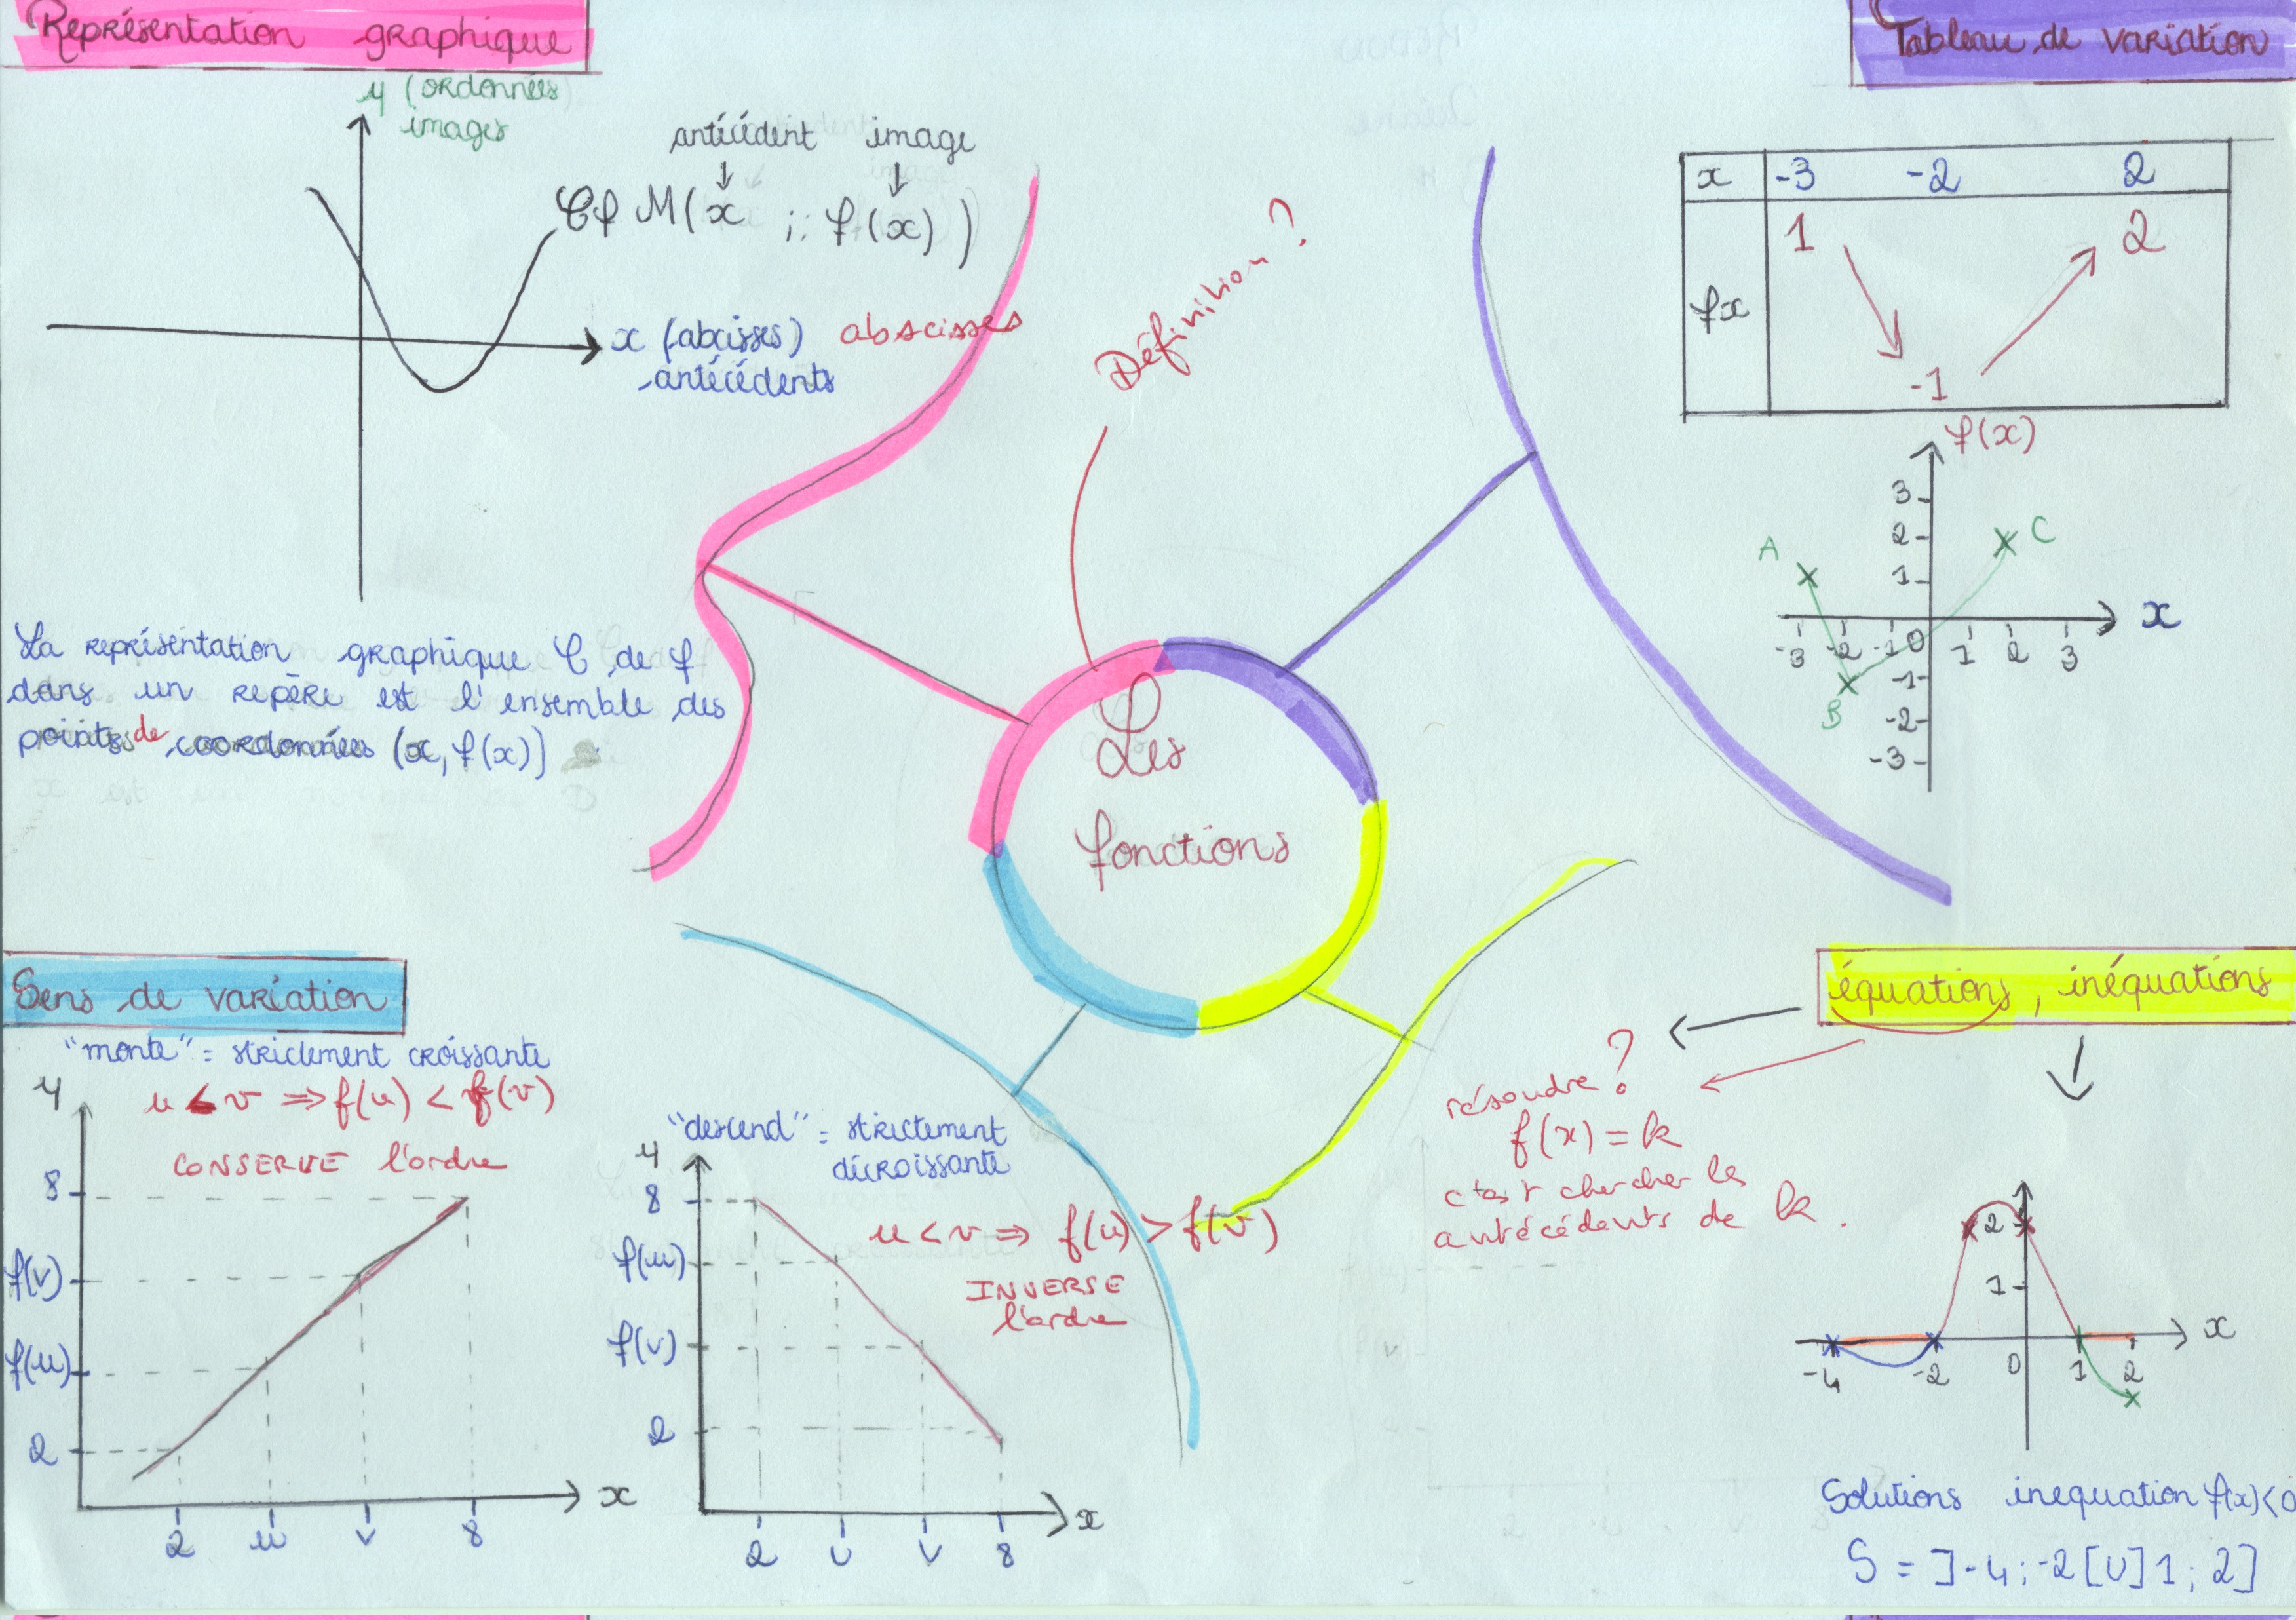 Représentation graphique
y (ordonnées)
images
antécédent image
Cf M(x ; f(x))
x (abcisses) abscisses
antécédents
La représentation graphique C de f
dans un repère est l'ensemble des
points de coordonnées (x, f(x))
Définition ?
Tableau de variation
x -3 -2 2
1 2
fx
-1
f(x)
3
2
1
A C
x
-3 -2 -1 0 1 2 3
B
-1
-2
-3
Les
fonctions
Sens de variation
"monte" = strictement croissante
u < v ⇒ f(u) < f(v)
CONSERVE l'ordre
y
8
f(v)
f(u)
2
x
2 u v 8
"descend" = strictement
décroissante
u < v ⇒ f(u) > f(v)
INVERSE
l'ordre
y
8
f(u)
f(v)
2
x
2 u v 8
équations, inéquations
résoudre ?
f(x) = k
c'est chercher les
antécédents de k.
2
1
x
-4 -2 0 1 2
Solutions inequation f(x)<0
S = ]-4;-2[U]1;2]